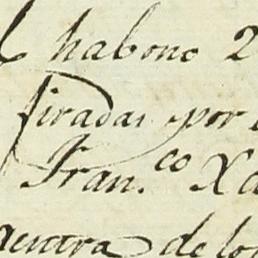 habono 2
firadas por
Fran.co Xa
de lo